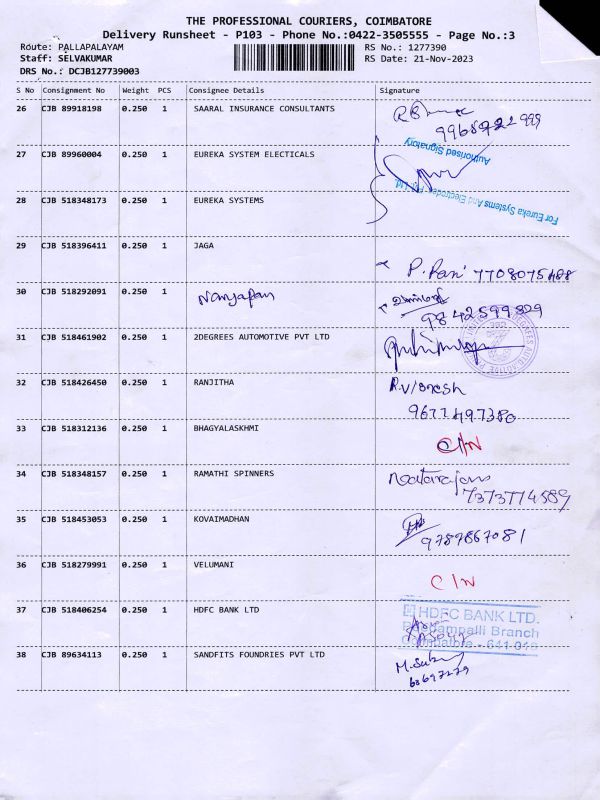 THE PROFESSIONAL COURIERS, COIMBATORE
Delivery Runsheet - P103 - Phone No.:0422-3505555 - Page No.:3
Route: PALLAPALAYAM RS No.: 1277390
Staff: SELVAKUMAR RS Date: 21-Nov-2023
DRS No.: DCJB127739003
S No Consignment No Weight PCS Consignee Details Signature
26 CJB 89918198 0.250 1 SAARAL INSURANCE CONSULTANTS
27 CJB 89960004 0.250 1 EUREKA SYSTEM ELECTICALS
Authorised Signatory
28 CJB 518348173 0.250 1 EUREKA SYSTEMS
For Eureka Systems And Electrodes Pvt. Ltd.
29 CJB 518396411 0.250 1 JAGA
P. Rani 7708075488
30 CJB 518292091 0.250 1 Narayanan
9842599829
31 CJB 518461902 0.250 1 2DEGREES AUTOMOTIVE PVT LTD
32 CJB 518426450 0.250 1 RANJITHA
9677497380
33 CJB 518312136 0.250 1 BHAGYALASKHMI C/N
34 CJB 518348157 0.250 1 RAMATHI SPINNERS Natarajan
7373774589
35 CJB 518453053 0.250 1 KOVAIMADHAN
9789867081
36 CJB 518279991 0.250 1 VELUMANI C/N
37 CJB 518406254 0.250 1 HDFC BANK LTD HDFC BANK LTD.
Branch
Coimbatore - 641 016
38 CJB 89634113 0.250 1 SANDFITS FOUNDRIES PVT LTD